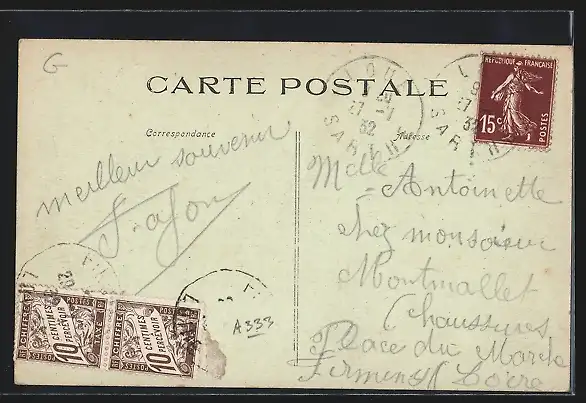 G
CARTE POSTALE
Correspondance
Adresse
RÉPUBLIQUE FRANÇAISE
15c
POSTES
27 -1
32
SARTH
meilleur souvenir
Mdlle Antoinette
chez monsieur
Montmallet
Chaussures
Place du Marché
Firminy Loire
A333
POSTES
CHIFFRE TAXE
10 CENTIMES À PERCEVOIR
POSTES
CHIFFRE TAXE
10 CENTIMES À PERCEVOIR